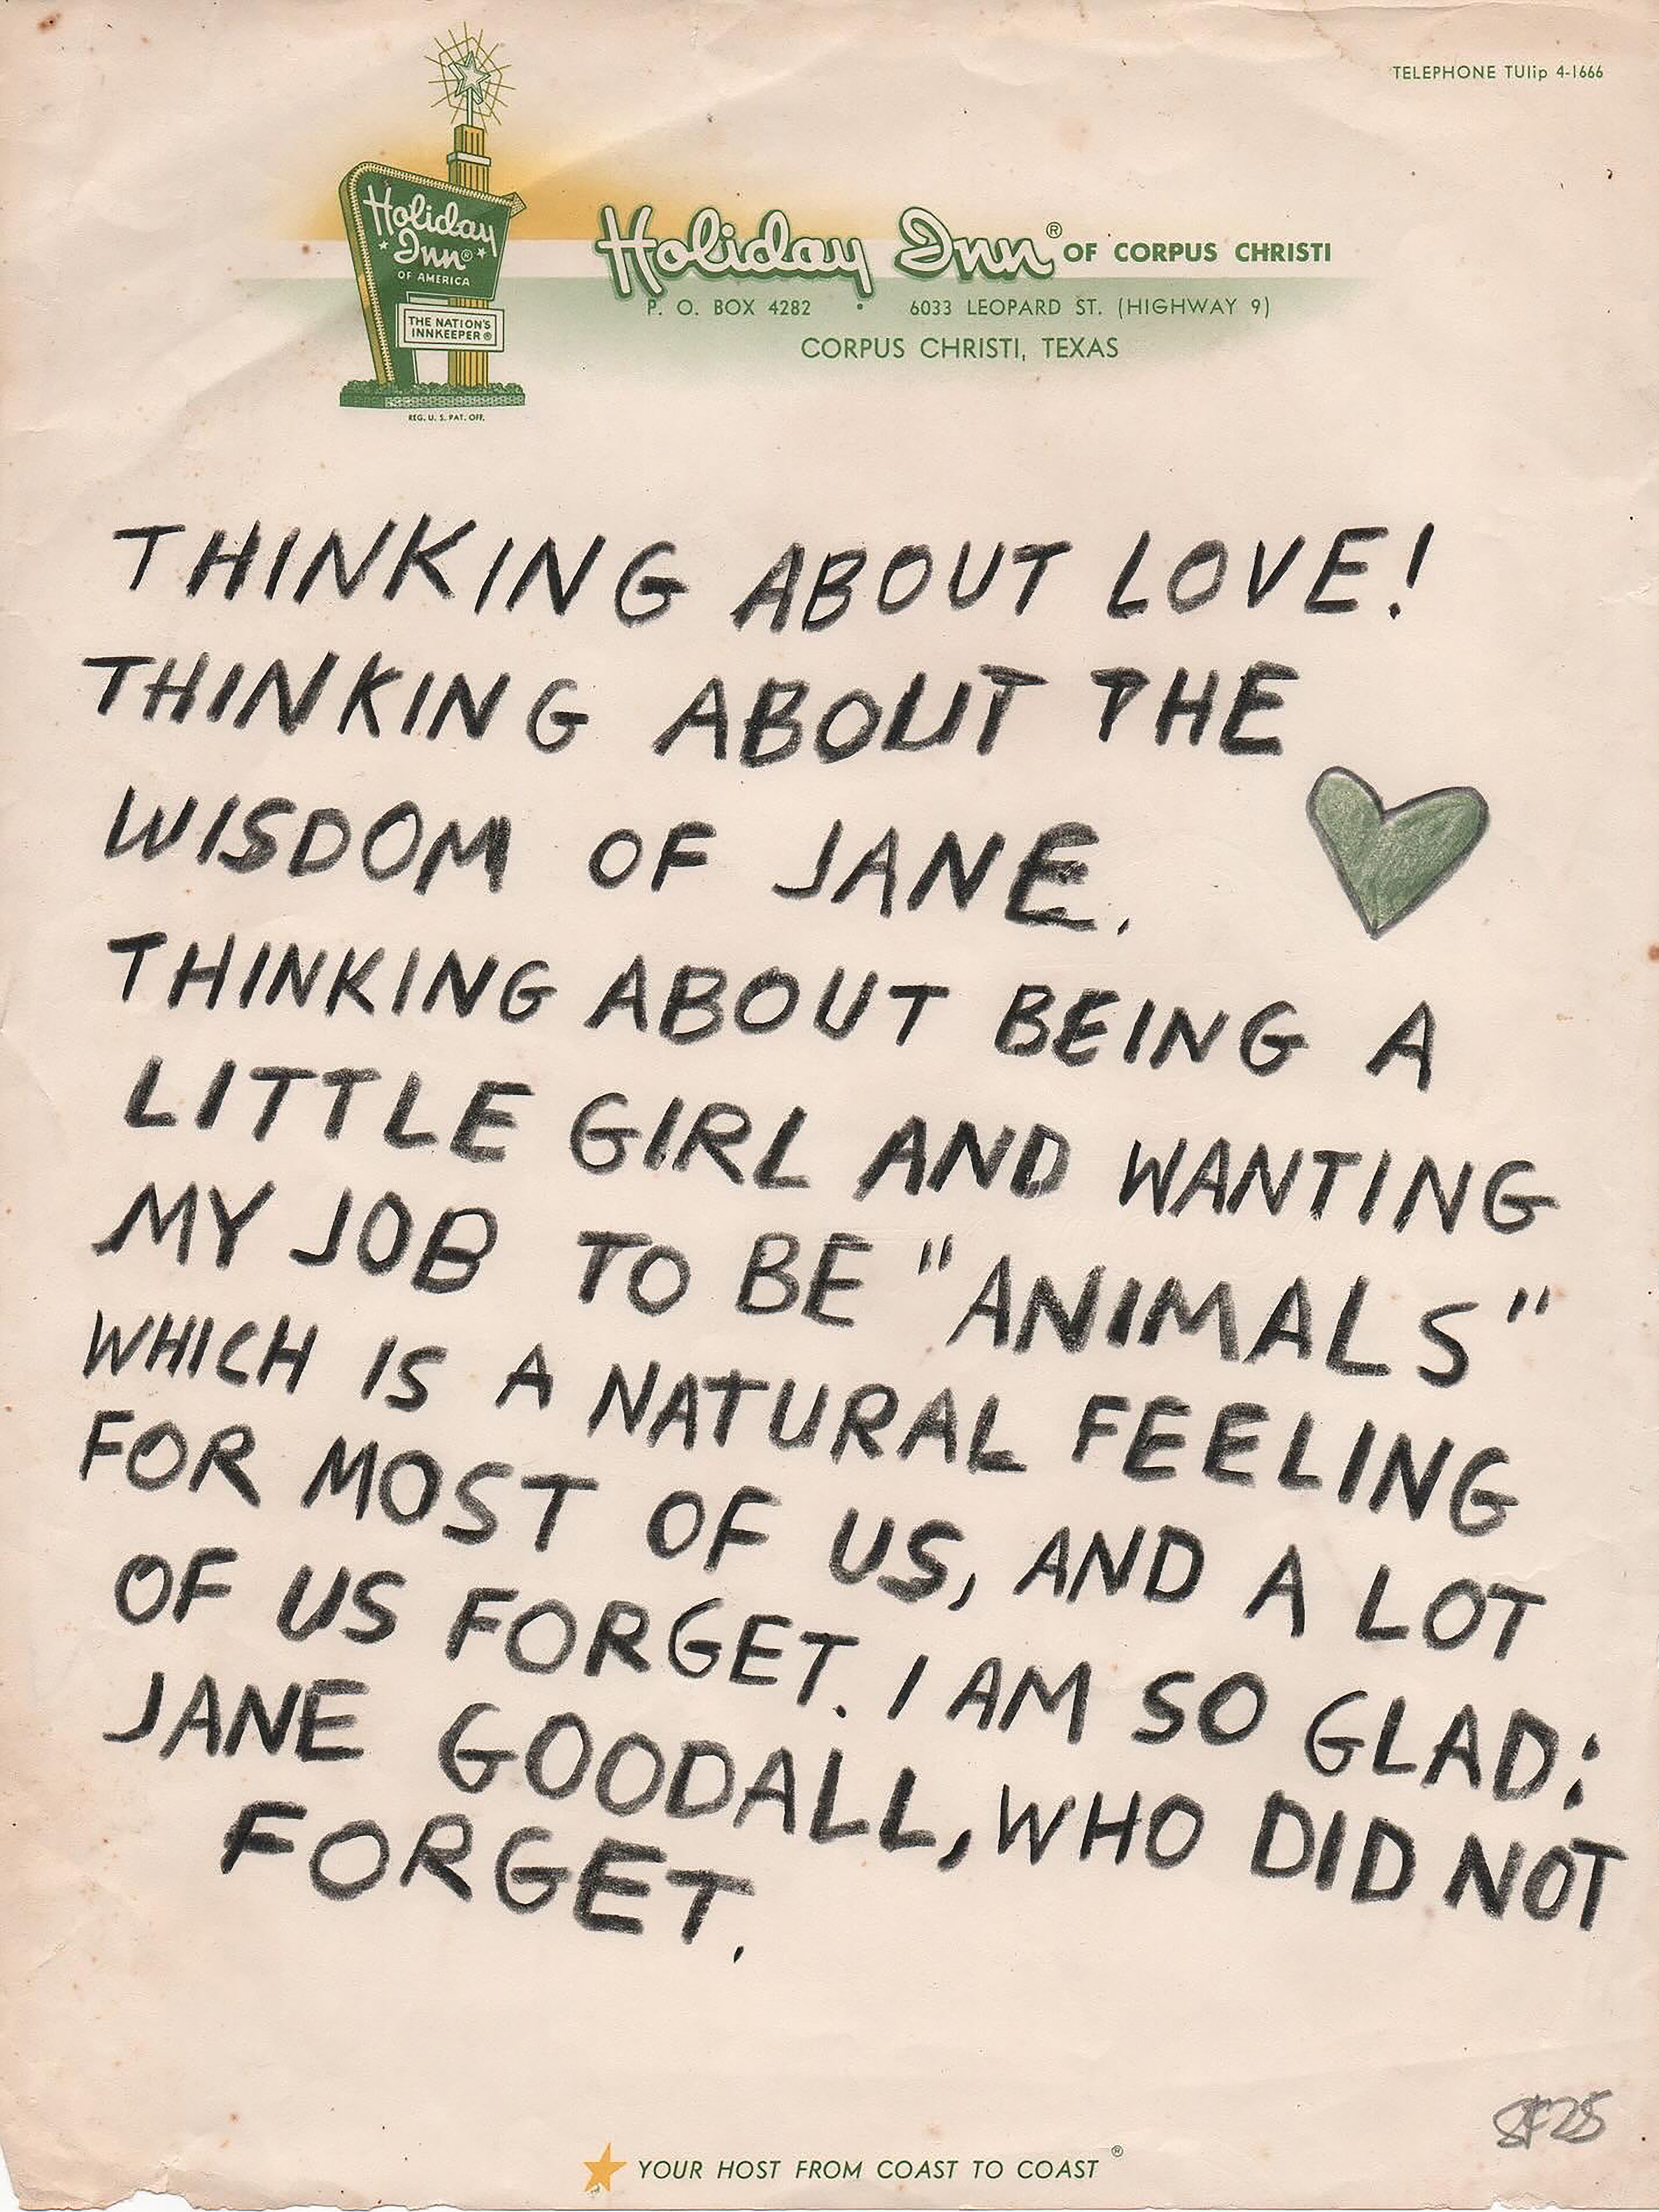 TELEPHONE TUlip 4-1666
Holiday
Inn®
OF AMERICA
THE NATION'S
INNKEEPER®
REG. U. S. PAT. OFF.
Holiday Inn® OF CORPUS CHRISTI
P. O. BOX 4282 • 6033 LEOPARD ST. (HIGHWAY 9)
CORPUS CHRISTI, TEXAS
THINKING ABOUT LOVE!
THINKING ABOUT THE
WISDOM OF JANE.
THINKING ABOUT BEING A
LITTLE GIRL AND WANTING
MY JOB TO BE "ANIMALS"
WHICH IS A NATURAL FEELING
FOR MOST OF US, AND A LOT
OF US FORGET. I AM SO GLAD:
JANE GOODALL, WHO DID NOT
FORGET.
YOUR HOST FROM COAST TO COAST®